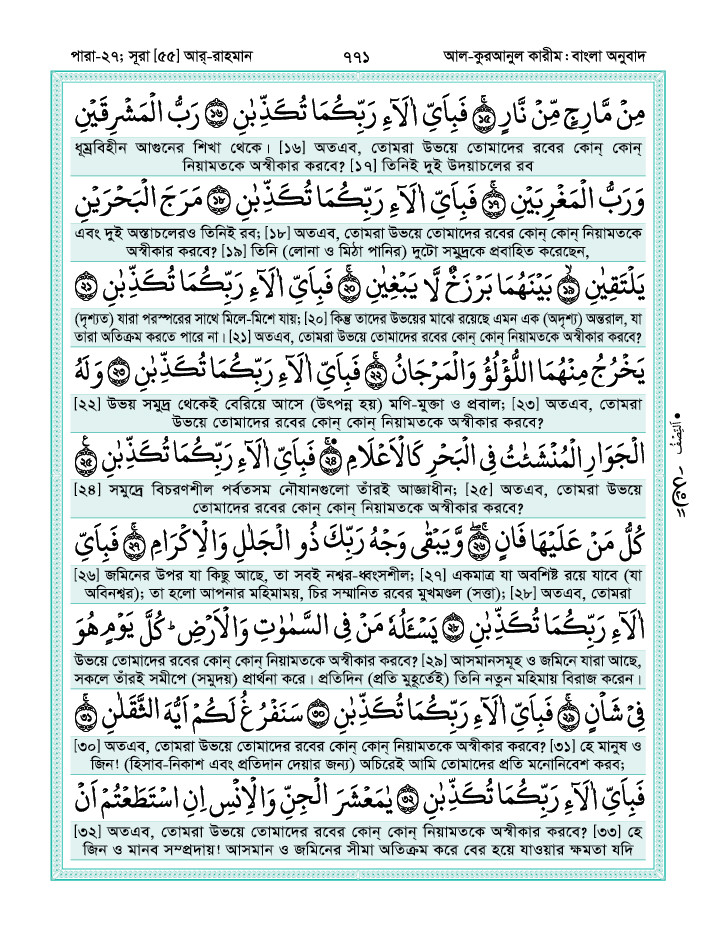 পারা-২৭; সূরা [৫৫] আর্-রাহমান ৭৭১ আল-কুরআনুল কারীম : বাংলা অনুবাদ
مِنْ مَّارِجٍ مِّنْ نَّارٍ ۝١٥ فَبِاَيِّ اٰلَآءِ رَبِّكُمَا تُكَذِّبٰنِ ۝١٦ رَبُّ الْمَشْرِقَيْنِ
ধূম্রবিহীন আগুনের শিখা থেকে। [১৬] অতএব, তোমরা উভয়ে তোমাদের রবের কোন্ কোন্
নিয়ামতকে অস্বীকার করবে? [১৭] তিনিই দুই উদয়াচলের রব
وَرَبُّ الْمَغْرِبَيْنِ ۝١٧ فَبِاَيِّ اٰلَآءِ رَبِّكُمَا تُكَذِّبٰنِ ۝١٨ مَرَجَ الْبَحْرَيْنِ
এবং দুই অস্তাচলেরও তিনিই রব; [১৮] অতএব, তোমরা উভয়ে তোমাদের রবের কোন্ কোন্ নিয়ামতকে
অস্বীকার করবে? [১৯] তিনি (লোনা ও মিঠা পানির) দুটো সমুদ্রকে প্রবাহিত করেছেন,
يَلْتَقِيٰنِ ۝١٩ بَيْنَهُمَا بَرْزَخٌ لَّا يَبْغِيٰنِ ۝٢٠ فَبِاَيِّ اٰلَآءِ رَبِّكُمَا تُكَذِّبٰنِ ۝٢١
(দৃশ্যত) যারা পরস্পরের সাথে মিলে-মিশে যায়; [২০] কিন্তু তাদের উভয়ের মাঝে রয়েছে এমন এক (অদৃশ্য) অন্তরাল, যা
তারা অতিক্রম করতে পারে না। [২১] অতএব, তোমরা উভয়ে তোমাদের রবের কোন্ কোন্ নিয়ামতকে অস্বীকার করবে?
يَخْرُجُ مِنْهُمَا اللُّؤْلُؤُ وَالْمَرْجَانُ ۝٢٢ فَبِاَيِّ اٰلَآءِ رَبِّكُمَا تُكَذِّبٰنِ ۝٢٣ وَلَهُ
[২২] উভয় সমুদ্র থেকেই বেরিয়ে আসে (উৎপন্ন হয়) মণি-মুক্তা ও প্রবাল; [২৩] অতএব, তোমরা
উভয়ে তোমাদের রবের কোন্ কোন্ নিয়ামতকে অস্বীকার করবে?
الْجَوَارِ الْمُنْشَئٰتُ فِى الْبَحْرِ كَالْاَعْلَامِ ۝٢٤ فَبِاَيِّ اٰلَآءِ رَبِّكُمَا تُكَذِّبٰنِ ۝٢٥
[২৪] সমুদ্রে বিচরণশীল পর্বতসম নৌযানগুলো তাঁরই আজ্ঞাধীন; [২৫] অতএব, তোমরা উভয়ে
তোমাদের রবের কোন্ কোন্ নিয়ামতকে অস্বীকার করবে?
كُلُّ مَنْ عَلَيْهَا فَانٍ ۝٢٦ وَّيَبْقٰى وَجْهُ رَبِّكَ ذُو الْجَلٰلِ وَالْاِكْرَامِ ۝٢٧ فَبِاَيِّ
[২৬] জমিনের উপর যা কিছু আছে, তা সবই নশ্বর-ধ্বংসশীল; [২৭] একমাত্র যা অবশিষ্ট রয়ে যাবে (যা
অবিনশ্বর); তা হলো আপনার মহিমাময়, চির সম্মানিত রবের মুখমণ্ডল (সত্তা); [২৮] অতএব, তোমরা
اٰلَآءِ رَبِّكُمَا تُكَذِّبٰنِ ۝٢٨ يَسْئَلُهٗ مَنْ فِى السَّمٰوٰتِ وَالْاَرْضِ ؕ كُلَّ يَوْمٍ هُوَ
উভয়ে তোমাদের রবের কোন্ কোন্ নিয়ামতকে অস্বীকার করবে? [২৯] আসমানসমূহ ও জমিনে যারা আছে,
সকলে তাঁরই সমীপে (সমুদয়) প্রার্থনা করে। প্রতিদিন (প্রতি মুহূর্তেই) তিনি নতুন মহিমায় বিরাজ করেন।
فِىْ شَاْنٍ ۝٢٩ فَبِاَيِّ اٰلَآءِ رَبِّكُمَا تُكَذِّبٰنِ ۝٣٠ سَنَفْرُغُ لَكُمْ اَيُّهَ الثَّقَلٰنِ ۝٣١
[৩০] অতএব, তোমরা উভয়ে তোমাদের রবের কোন্ কোন্ নিয়ামতকে অস্বীকার করবে? [৩১] হে মানুষ ও
জিন! (হিসাব-নিকাশ এবং প্রতিদান দেয়ার জন্য) অচিরেই আমি তোমাদের প্রতি মনোনিবেশ করব;
فَبِاَيِّ اٰلَآءِ رَبِّكُمَا تُكَذِّبٰنِ ۝٣٢ يٰمَعْشَرَ الْجِنِّ وَالْاِنْسِ اِنِ اسْتَطَعْتُمْ اَنْ
[৩২] অতএব, তোমরা উভয়ে তোমাদের রবের কোন্ কোন্ নিয়ামতকে অস্বীকার করবে? [৩৩] হে
জিন ও মানব সম্প্রদায়! আসমান ও জমিনের সীমা অতিক্রম করে বের হয়ে যাওয়ার ক্ষমতা যদি
اَلنِّصْف